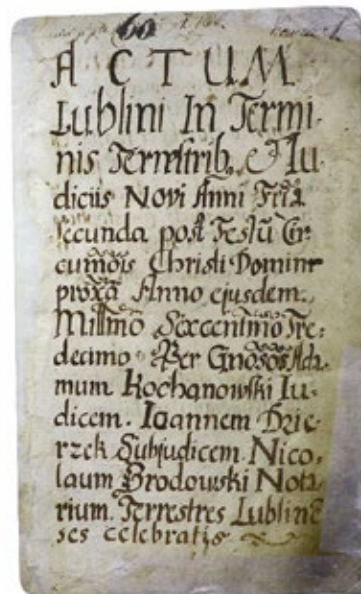 60
ACTUM
Lublini In Termi-
nis Terrestrib. & Iu-
diciis Novi Anni Feria
secunda post Festū Cir-
cumōis Christi Domini
proxa Anno ejusdem.
Millmo Sexcentmo Tre-
decimo. Per Gnosos Ada-
mum Kochanowski Iu-
dicem. Ioannem Drie-
rzek Subjudicem. Nico-
laum Brodowski Nota-
rium. Terrestres Lublinē
ses celebratis